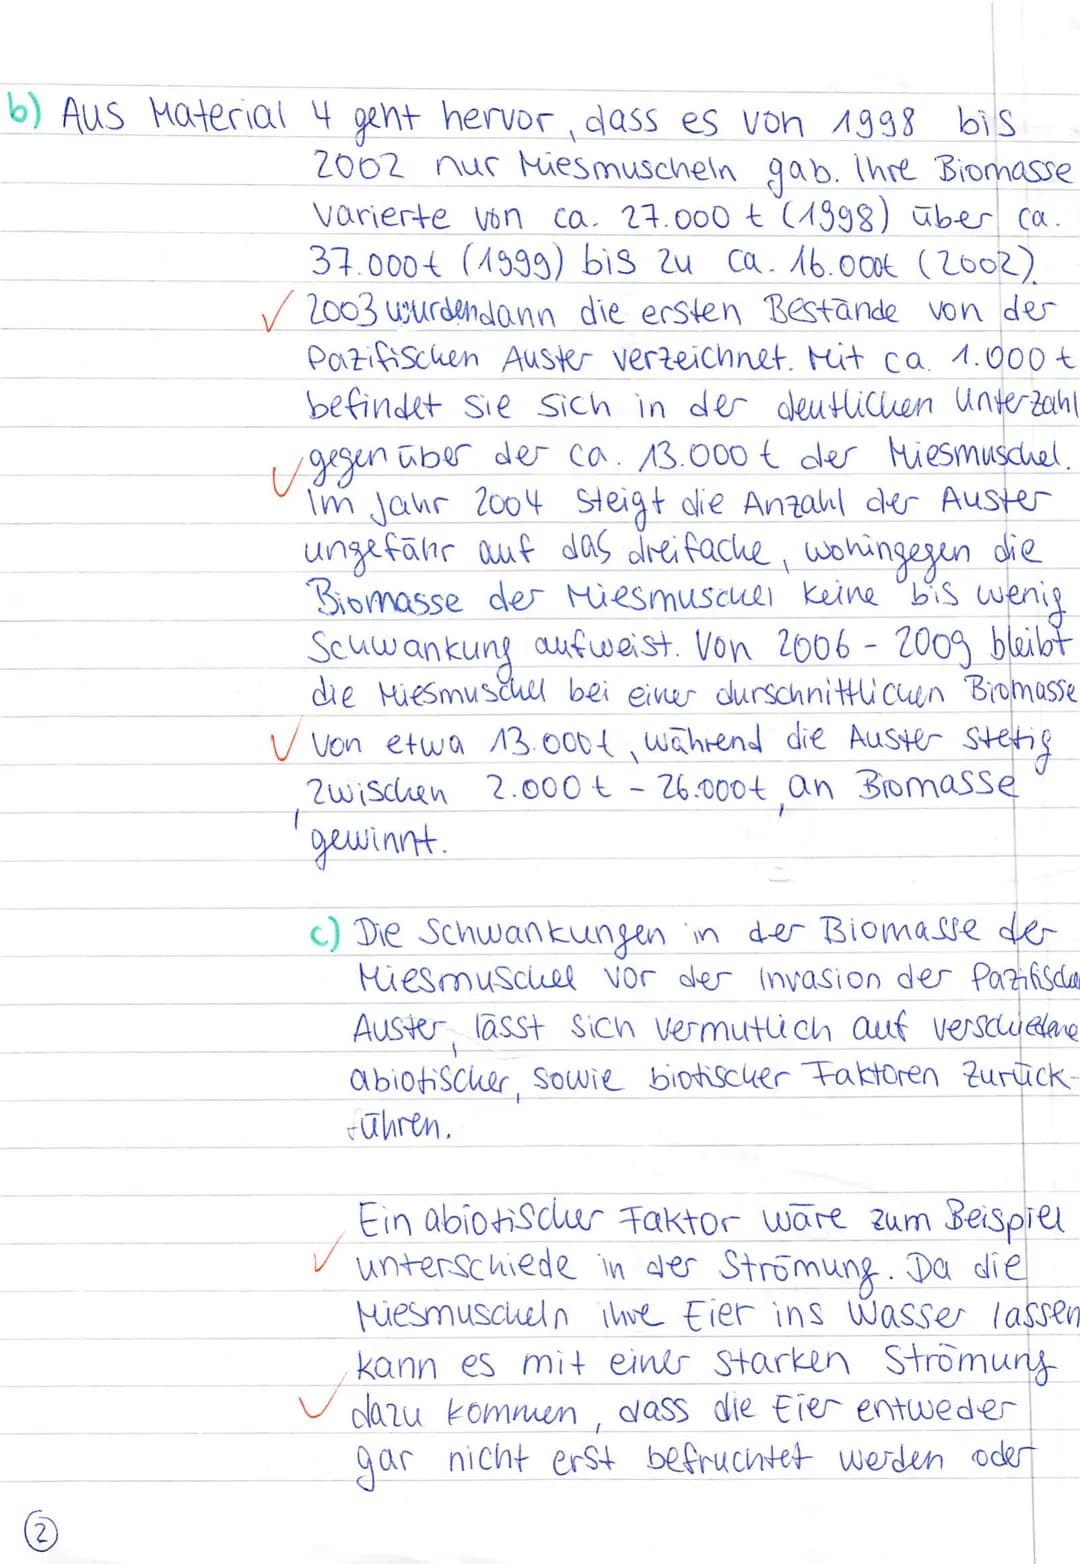 b) Aus Material 4 geht hervor, dass es von 1998 bis
2002 nur Miesmuscheln gab. Ihre Biomasse
varierte von ca. 27.000 t (1998) über ca.
37.000t (1999) bis zu ca. 16.000t (2002).
2003 wurden dann die ersten Bestände von der
Pazifischen Auster verzeichnet. Mit ca. 1.000 t
befindet sie sich in der deutlichen Unterzahl
gegenüber der ca. 13.000 t der Miesmuschel.
Im Jahr 2004 steigt die Anzahl der Auster
ungefähr auf das dreifache, wohingegen die
Biomasse der Miesmuschel keine bis wenig
Schwankung aufweist. Von 2006 - 2009 bleibt
die Miesmuschel bei einer durschnittlichen Biomasse
von etwa 13.000t, während die Auster stetig
zwischen 2.000 t - 26.000t, an Biomasse
gewinnt.
c) Die Schwankungen in der Biomasse der
Miesmuschel vor der Invasion der Pazifische
Auster, lässt sich vermutlich auf verschiedene
abiotischer, sowie biotischer Faktoren zurück-
führen.
Ein abiotischer Faktor wäre zum Beispiel
unterschiede in der Strömung. Da die
Miesmuscheln ihre Eier ins Wasser lassen
kann es mit einer starken Strömung
dazu kommen, dass die Eier entweder
gar nicht erst befruchtet werden oder
2